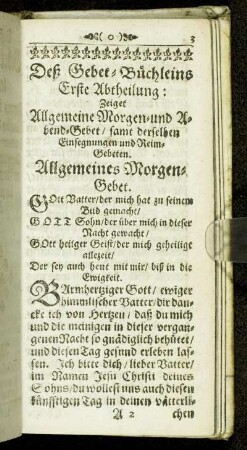 ( o ) 3
Deß Gebet-Büchleins
Erste Abtheilung:
Zeiget
Allgemeine Morgen- und A-
bend-Gebet / samt derselben
Einsegnungen und Reim-
Gebeten.
Allgemeines Morgen-
Gebet.
GOtt Vatter / der mich hat zu seinem
Bild gemacht /
GOTT Sohn / der über mich in dieser
Nacht gewacht /
GOtt heilger Geist / der mich geheilige
allezeit /
Der sey auch heut mit mir / biß in die
Ewigkeit.
BArmhertziger Gott / ewiger
himmlischer Vatter / dir dan-
cke ich von Hertzen / daß du mich
und die meinigen in dieser vergan-
genen Nacht so gnädiglich behütet /
und diesen Tag gesund erleben las-
sen. Ich bitte dich / lieber Vatter /
im Namen Jesu Christi deines
Sohns / du wollest uns auch diesen
künfftigen Tag in deinen vätterli-
A 2 chen